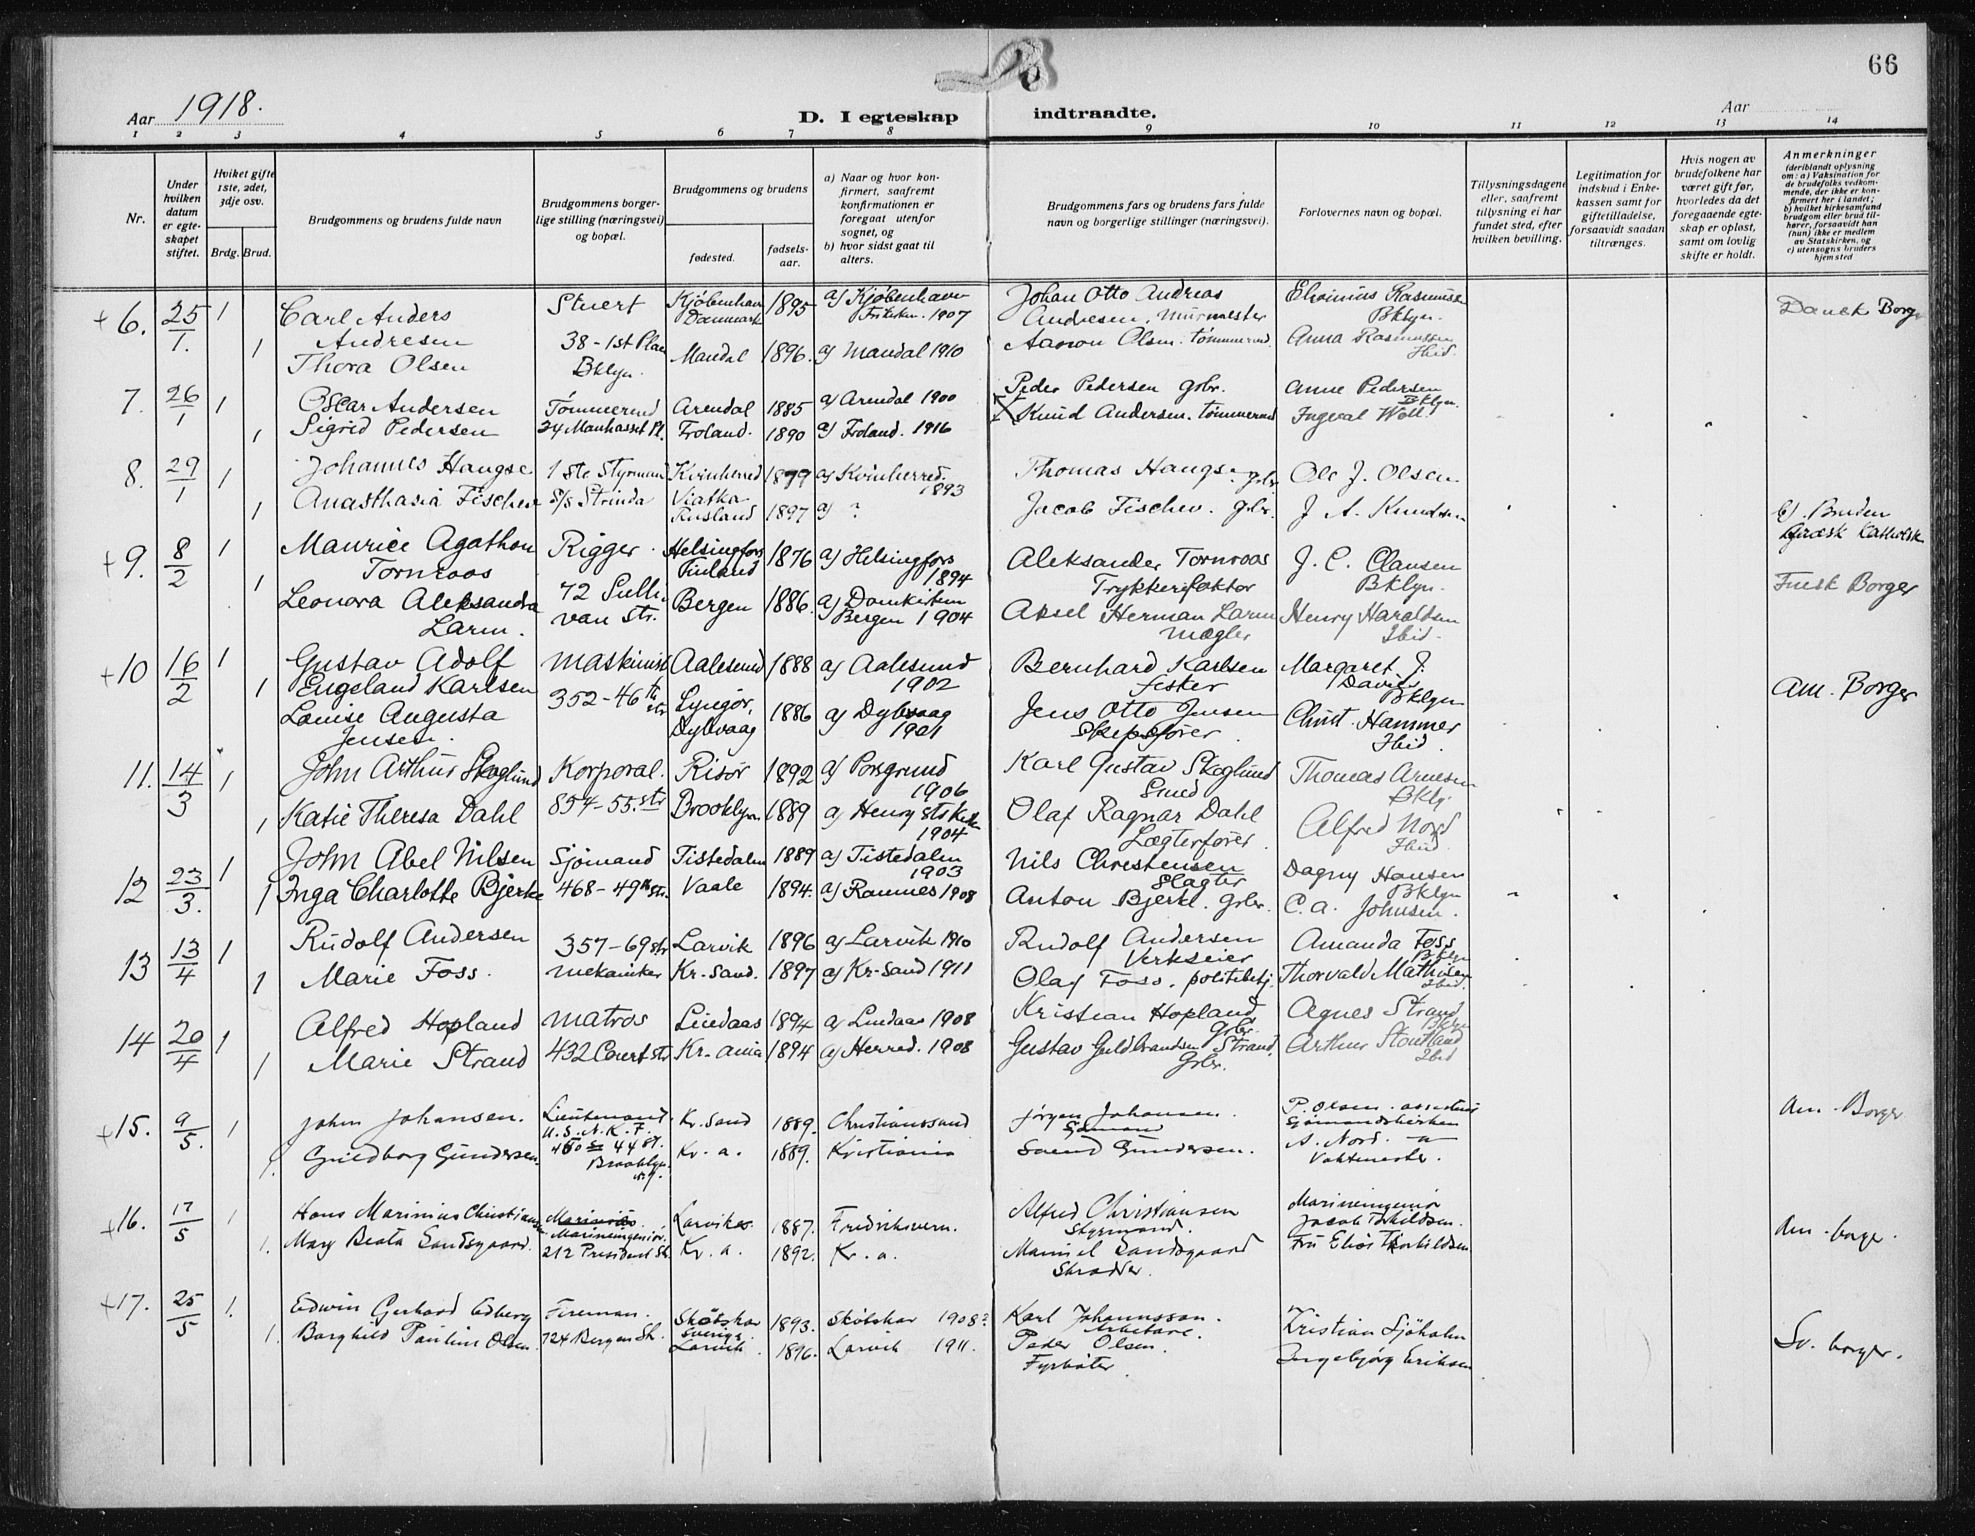 66
Aar 1918.
D. I egteskap indtraadte.
Aar
1 2 3 4 5 6 7 8 9 10 11 12 13 14
Nr.
Under hvilken datum er egteskapet stiftet.
Hviket gifte 1ste, 2det, 3dje osv.
Brdg. Brud.
Brudgommens og brudens fulde navn
Brudgommens borgerlige stilling (næringsvei) og bopæl.
Brudgommens og brudens
fødested.
fødselsaar.
a) Naar og hvor konfirmert, saafremt konfirmationen er foregaat utenfor sognet, og
b) hvor sidst gaat til alters.
Brudgommens fars og brudens fars fulde navn og borgerlige stillinger (næringsvei).
Forlovernes navn og bopæl.
Tillysningsdagene eller, saafremt tillysning ei har fundet sted, efter hvilken bevilling.
Legitimation for indskud i Enkekassen samt for giftetilladelse, forsaavidt saadan tiltrænges.
Hvis nogen av brudefolkene har været gift før, hvorledes da det foregaaende egteskap er opløst, samt om lovlig skifte er holdt.
Anmerkninger
(deriblandt oplysning om: a) Vaksination for de brudefolks vedkommende, der ikke er konfirmert her i landet; b) hvilket kirkesamfund brudgom eller brud tilhører, forsaavidt han (hun) ikke er medlem av Statskirken, og c) utensogns bruders hjemsted
+6. 25/1. 1 Carl Anders Andresen Stuert Kjøbenhavn Danmark 1895 a) Kjøbenhavn 1907 Johan Otto Andreas Andresen. Murmester Rasmussen Bklyn. Dansk Borger
1 Thora Olsen 38-1st Place Bklyn. Mandal 1896. a) Mandal 1910 Aanon Olsen. tømmermd. Anna Rasmussen Ibid.
7. 26/1 1 Oscar Andersen Tømmermd Arendal 1885 a) Arendal 1900 Peder Pedersen gbr. Anne Pedersen Bklyn.
1 Sigrid Pedersen 24 Manhasset Pl. Froland. 1890 a) Froland. 1916 Knud Andersen. tømmermd Ingval Woll.
8. 29/1 1 Johannes Haugse 1ste Styrmand Kvinherred 1879 a) Kvinherred. 1893 Thomas Haugse. gbr. Ole J. Olsen
1 Anasthasia Fischer s/s Strinda Viatka Rusland 1897 a) ? Jacob Fischer. gbr. J. A. Knudsen b). Bruden Græsk Katholsk
+9. 8/2 1 Maurice Agathon Tornroos Rigger. Helsingfors Finland 1876 a) Helsingfors 1894 Aleksander Tornroos Trykkerifaktor J. C. Clausen Bklyn. Finsk Borger
1 Leonora Aleksandra Larm. 72 Sullivan str. Bergen 1886. a) Domkirken Bergen 1904 Aksel Herman Larm Mægler Henry Haraldsen Ibid.
+10 16/2 1 Gustav Adolf Engeland Karlsen Maskinist Aalesund 1888 a) Aalesund 1902 Bernhard Karlsen fisker Margaret J. Davies Bklyn Am. Borger
1 Louise Augusta Jensen. 352-46th str Lyngør, Dybvaag 1886 a) Dybvaag 1901 Jens Otto Jensen Skipsfører Christ. Hammer Ibid.
11. 14/3 1 John Arthur Skoglund Korporal. Risør 1892 a) Porsgrund 1906 Karl Gustav Skoglund Smed Thomas Arnesen Bkly.
1 Katie Theresa Dahl 854-55. str Brooklyn 1889 a) Henry str Kirke 1904 Olaf Ragnar Dahl Lægterfører Alfred Nord Ibid.
12 23/3. 1 John Abel Nilsen Sjømand Tistedalen 1889 a) Tistedalen 1903 Nils Christensen Slagter Dagny Hansen Bklyn
1 Inga Charlotte Bjerke 468-49th str. Vaale 1894. a) Ramnes 1908 Anton Bjerke. gbr. C. A. Johnsen.
13 13/4 1 Rudolf Andersen 357-69 str Larvik 1896 a) Larvik 1910 Rudolf Andersen Verkseier Amanda Foss Bklyn
1 Marie Foss. Mekaniker Kr. Sand. 1897 a) Kr-Sand 1911 Olaf Foss. politibetj. Thorvald Mathisen Ibid.
14 20/4 1 Alfred Hopland Matros Lindaas 1894 a) Lindaas 1908 Kristian Hopland Gbr. Agnes Strand Bklyn
1 Marie Strand 432 Court str Kr-ania 1894 a) Herred. 1908 Gustav Guldbrandsen Strand. Gbr. Arthur Stoutland Ibid
+15. 9/5. 1 John Johansen. Lieutenant U.S.N.R.F. Kr. Sand 1889. Christianssand Jørgen Johansen. Sjømand P. Olsen. assistent Sjømandskirken Am. Borger
1. Guldborg Gundersen. 450 44 St. Brooklyn N.Y. Kr. a. 1889. Kristiania Gundersen. A. Nord. Vaktmester.
+16. 17/5 1 Hans Marinius Christiansen Marineingeniør. Larvik 1887. Fredriksvern. Alfred Christiansen Styrmand. Marineingeniør Jacob Torkildsen. Am. borger.
1. Mary Beata Sandsgaard. 212 President St. Kr. a. 1892. Kr. a. Sandsgaard Skrædder. Fru Elise Torkildsen
+17. 25/5 1. Edwin Gerhard Edberg Fireman. Skötskär Sverige 1893. Skötskär 1908? Karl Johannsson. Arbetare. Kristian Sjöholm Sv. borger.
1. Borghild Pauline Olsen 724 Bergen St. Larvik 1896. Larvik 1911. Peder Olsen. Fyrbøter Ingebjørg Eriksen